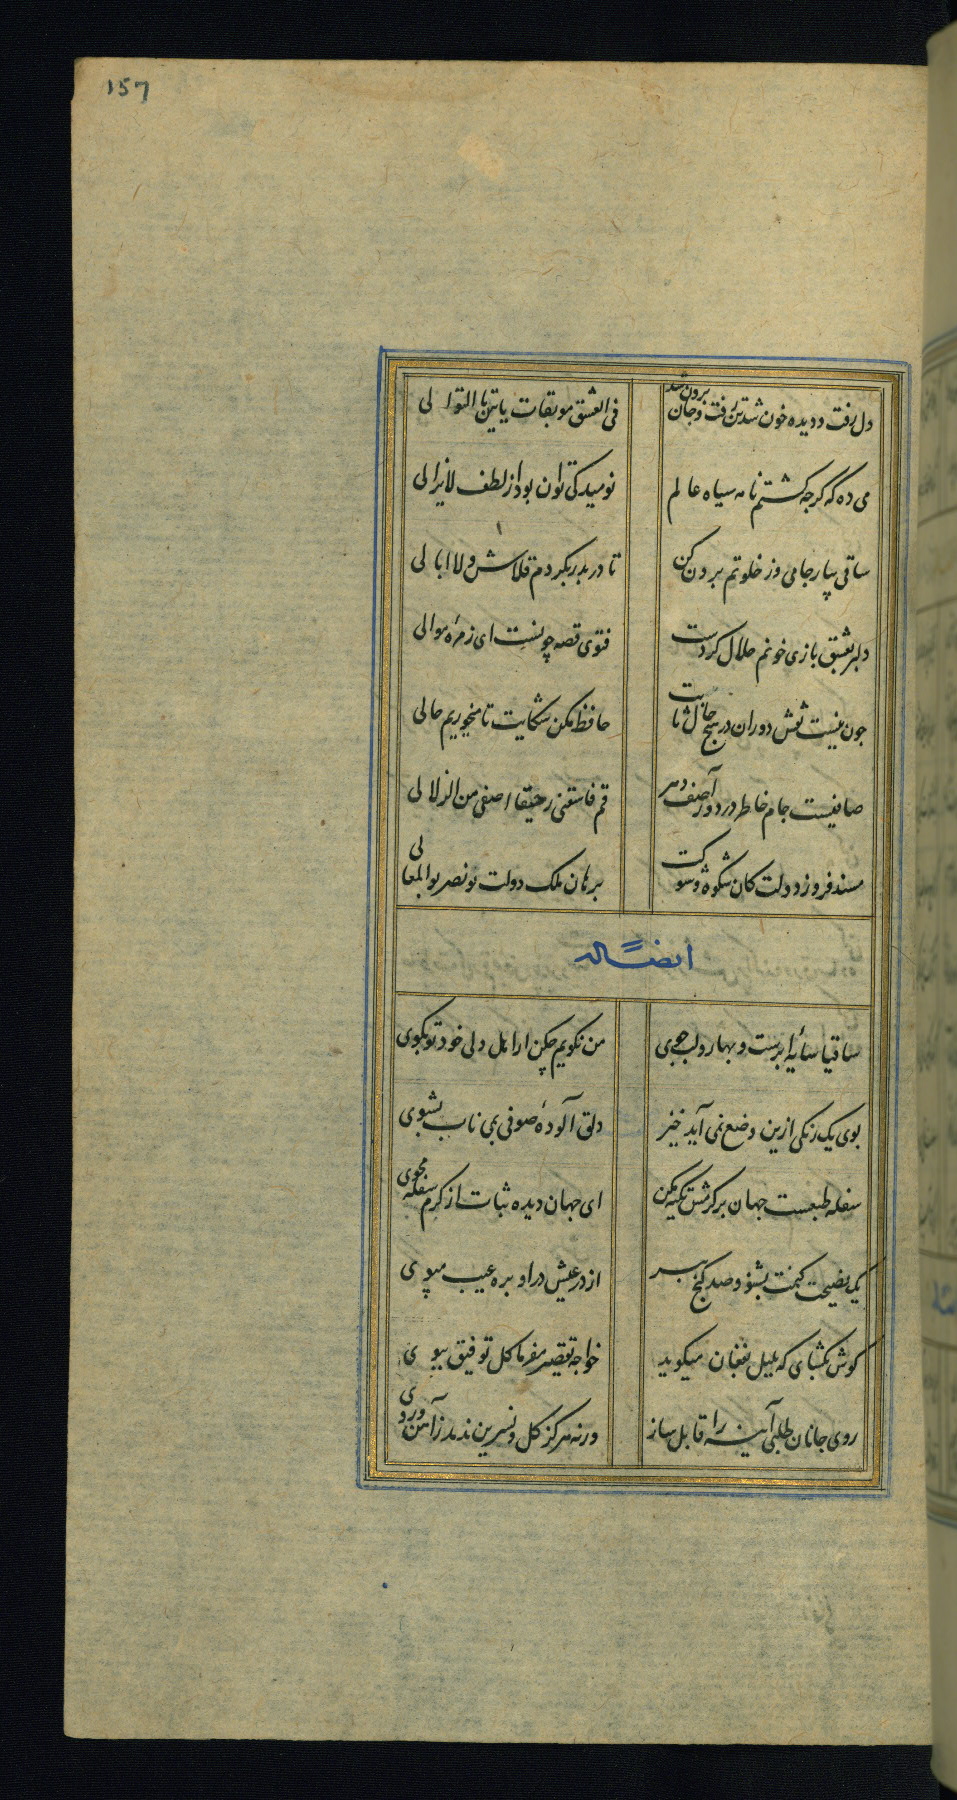 157
دل رفت و دیده خون شد تن رفت و جان برون شد
فی العشق موبقات یاتین بالتوالی
می ده که گرچه گشتم نامه سیاه عالم
نومید کی توان بود از لطف لایزالی
ساقی بیار جامی وز خلوتم برون کن
تا در بدر بکردم قلاش و لا ابالی
دلبر بعشق بازی خونم حلال کردست
فتوی قصه چونست ای زمرهٔ موالی
چون نیست نقش دوران در هیچ حال ثابت
حافظ مکن شکایت تا میخوریم حالی
صافیست جام خاطر در دور آصف دهر
قم فاسقنی رحیقا اصفی من الزلالی
مسند فروز دولت کان شکوه و شوکت
برهان ملک دولت بونصر بوالمعالی
ایضاً له
ساقیا سایهٔ ابرست و بهار و لب جوی
من نکویم چکن ار اهل دلی خود تو بکوی
بوی یک رنکی ازین وضع نمی آید خیز
دلق آلودهٔ صوفی بمی ناب بشوی
سفله طبعست جهان بر کرمش تکیه مکن
ای جهان دیده ثبات از کرم سفله مجوی
یک نصیحت کنمت بشنو و صد کنج ببر
از در عیش در او بره عیب مپوی
کوش بکشای که بلبل بفغان میکوید
خواجه تقصیر مفرما کل توفیق ببوی
روی جانان طلبی آینه را قابل ساز
ورنه هرکز کل و نسرین ندمد ز آهن و روی